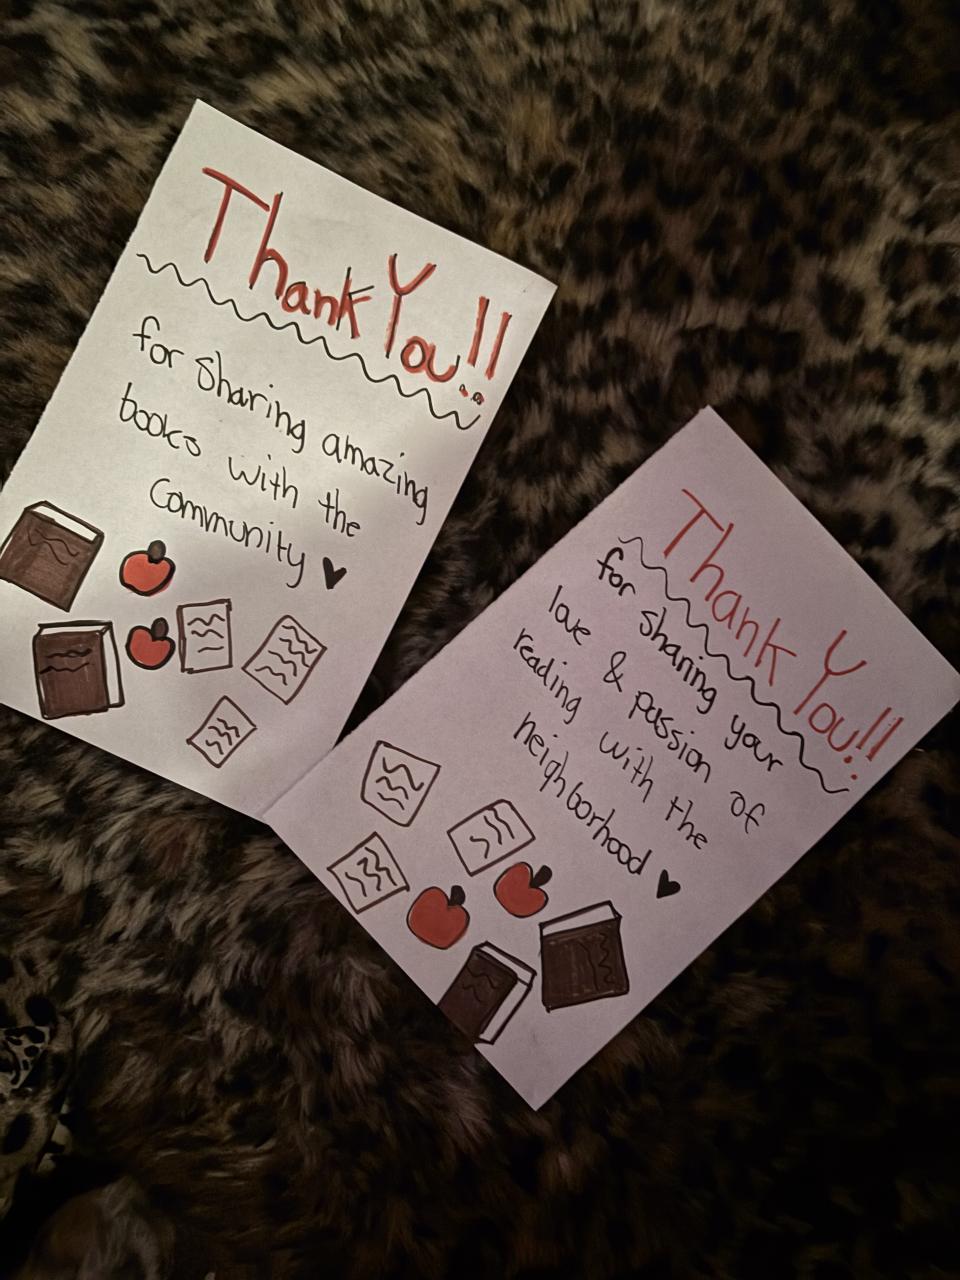 Thank You!!
for sharing amazing
books with the
Community
Thank You!!
for sharing your
love & passion of
reading with the
neighborhood